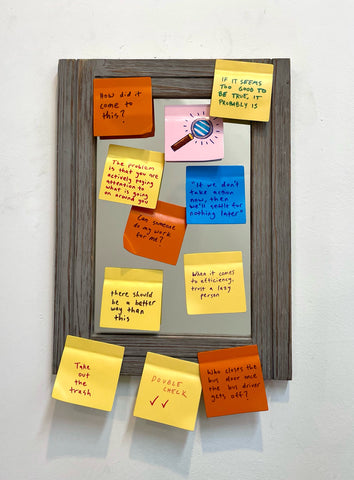 How did it
come to
this?
IF IT SEEMS
TOO GOOD TO
BE TRUE, IT
PROBABLY IS
The problem
is that you are
actively paying
attention to
what is going
on around you
"If we don't
take action
now, then
we'll settle for
nothing later"
Can someone
do my work
for me?
When it comes
to efficiency,
trust a lazy
person
there should
be a better
way than
this
Take
out
the
trash
DOUBLE
CHECK
✓✓
Who closes the
bus door once
the bus driver
gets off?